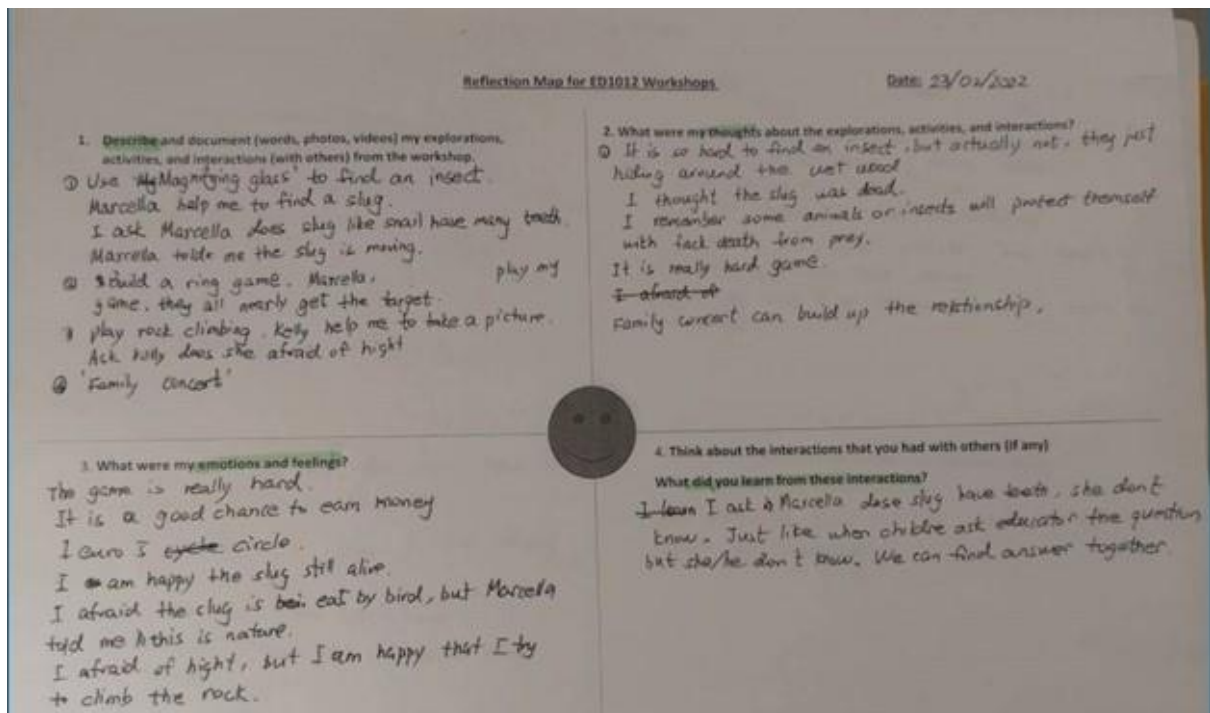 Reflection Map for ED1012 Workshops
Date: 23/02/2022
1. Describe and document (words, photos, videos) my explorations,
activities, and interactions (with others) from the workshop.
① Use Magnifying glass" to find an insect.
Marcella help me to find a slug.
I ask Marcella does slug like snail have many teeth.
Marcella tolde me the slug is moving.
② build a ring game. Marcella, play my
game, they all nearly get the target.
play rock climbing. Kelly help me to take a picture.
Ask Kelly does she afraid of hight
"Family concert"
2. What were my thoughts about the explorations, activities, and interactions?
① It is so hard to find an insect, but actually not, they just
hiding around the wet wood
I thought the slug was dead.
I remember some animals or insects will protect themself
with fack death from prey.
It is really hard game.
I afraid of
Family concert can build up the relationship.
3. What were my emotions and feelings?
The game is really hard.
It is a good chance to earn money
1 euro 5 cycle circle.
I am happy the slug still alive.
I afraid the clug is eat by bird, but Marcella
told me this is nature.
I afraid of hight, but I am happy that I try
to climb the rock.
4. Think about the interactions that you had with others (if any)
What did you learn from these interactions?
I learn I ask Marcella dose slug have teeth, she don't
know. Just like when childre ask educator the question
but she/he don't know. We can find answer together